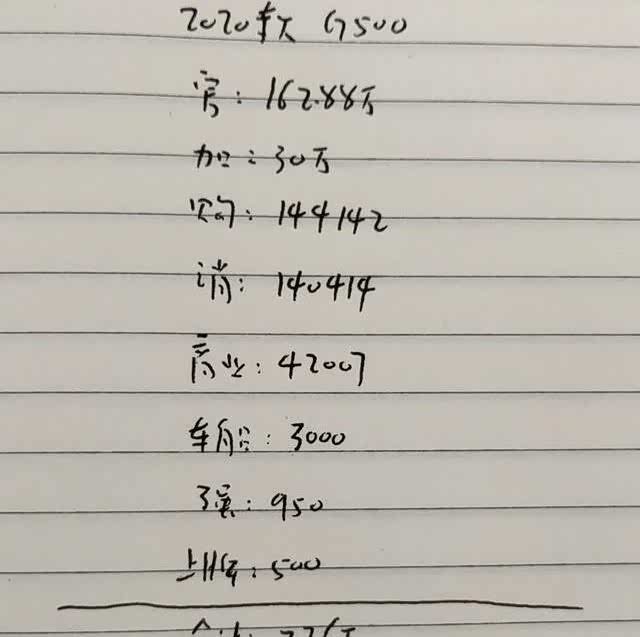 2020款 G500
官: 162.88万
加: 30万
购: 144142
消: 140414
商业: 42007
车船: 3000
强: 950
上牌: 500